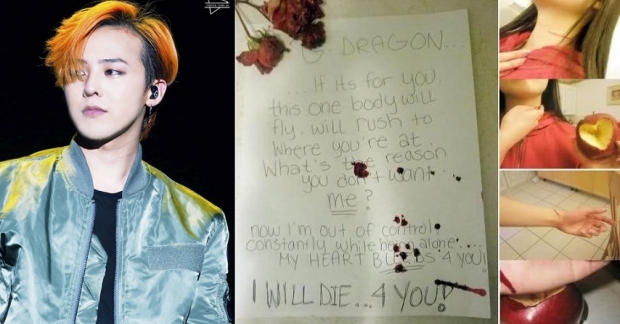 G-DRAGON...
...If its for you,
this one body will
fly, will rush to
where you're at.
What's the reason
you don't want
me?
now I'm out of control
constantly while being alone....
MY HEART BLEEDS 4 YOU!
I WILL DIE...4 YOU!